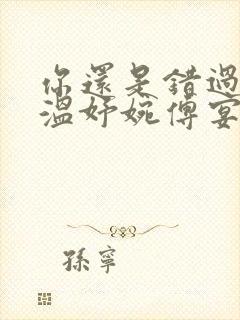 你還是錯過
溫妤婉傅宴
孫寧